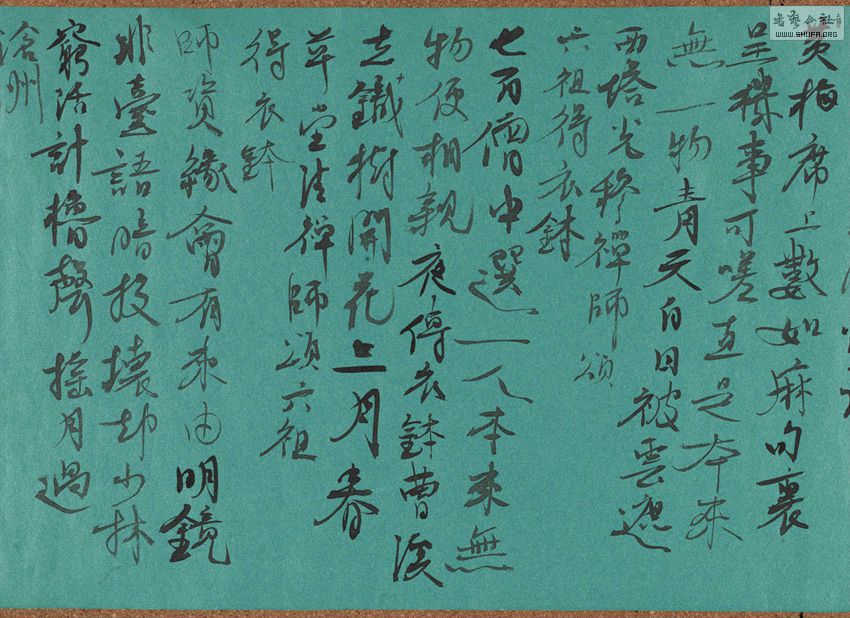 黃梅席上數如麻句裏
呈機事可嗟直是本來
無一物青天白日被雲遮
西塔光穆禪師頌
六祖得衣鉢
七百僧中選一人本來無
物便相親夜傳衣鉢曹溪
去鐵樹開花二月春
草堂清禪師頌六祖
得衣鉢
師資緣會有來由明鏡
非臺語暗投壞却少林
窮活計櫓聲搖月過
滄州
書藝公社
WWW.SHUFA.ORG